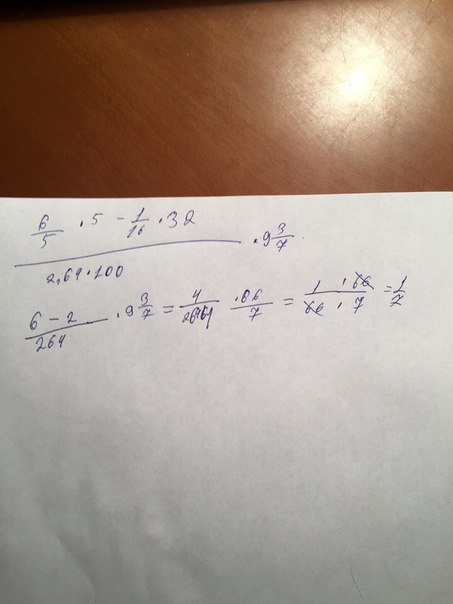 6/5 · 5 - 1/16 · 32
2,64 · 100 · 9 3/7
6 - 2 / 264 · 9 3/7 = 4/264 · 66/7 = 1 · 66 / 66 · 7 = 1/7